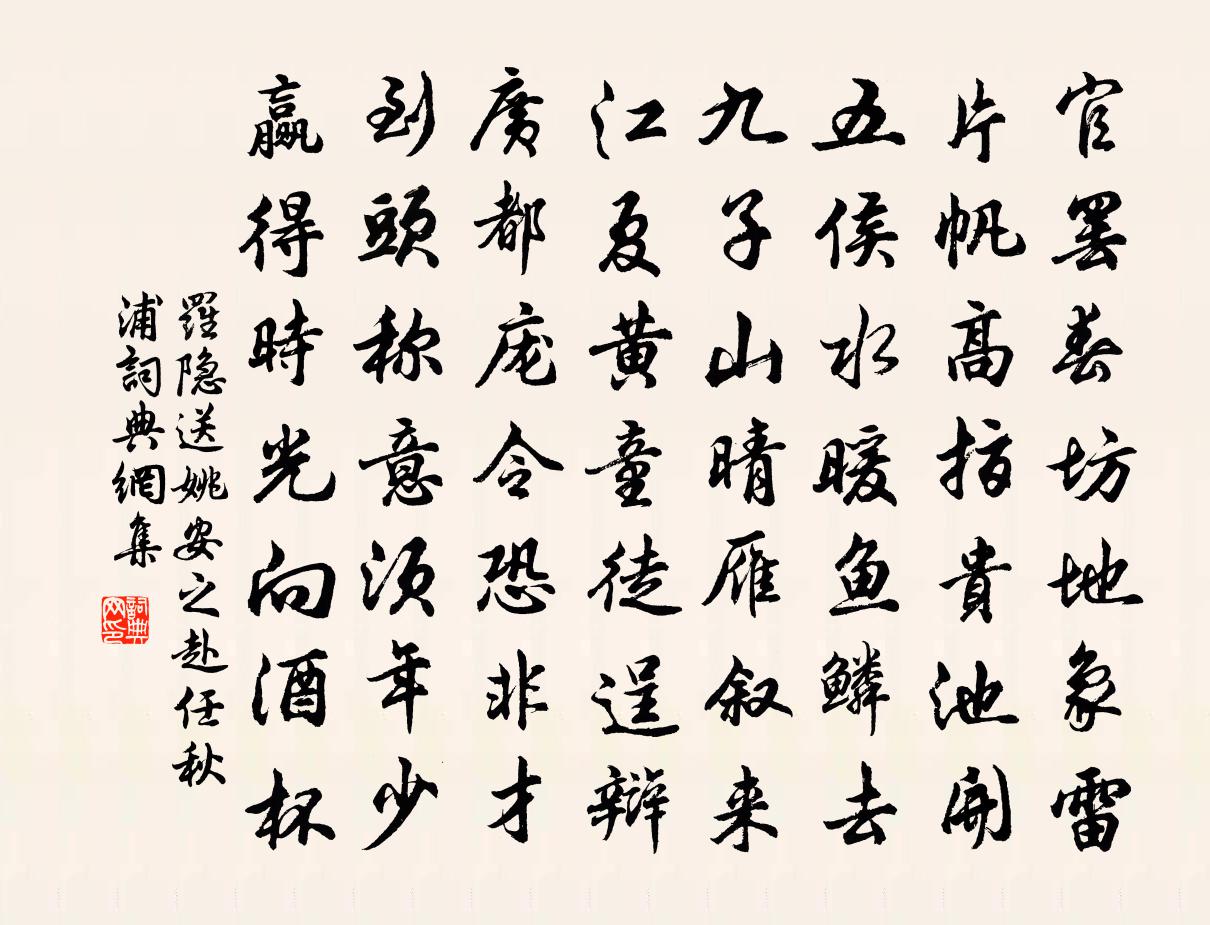 官罢春坊地象雷
片帆高指貴池開
五侯水暖鱼鳞去
九子山晴雁叙来
江夏黄童徒逞辯
廣都庞令恐非才
到頭称意須年少
贏得時光向酒杯
羅隐送姚安之赴任秋
浦詞典網集
詞典网印